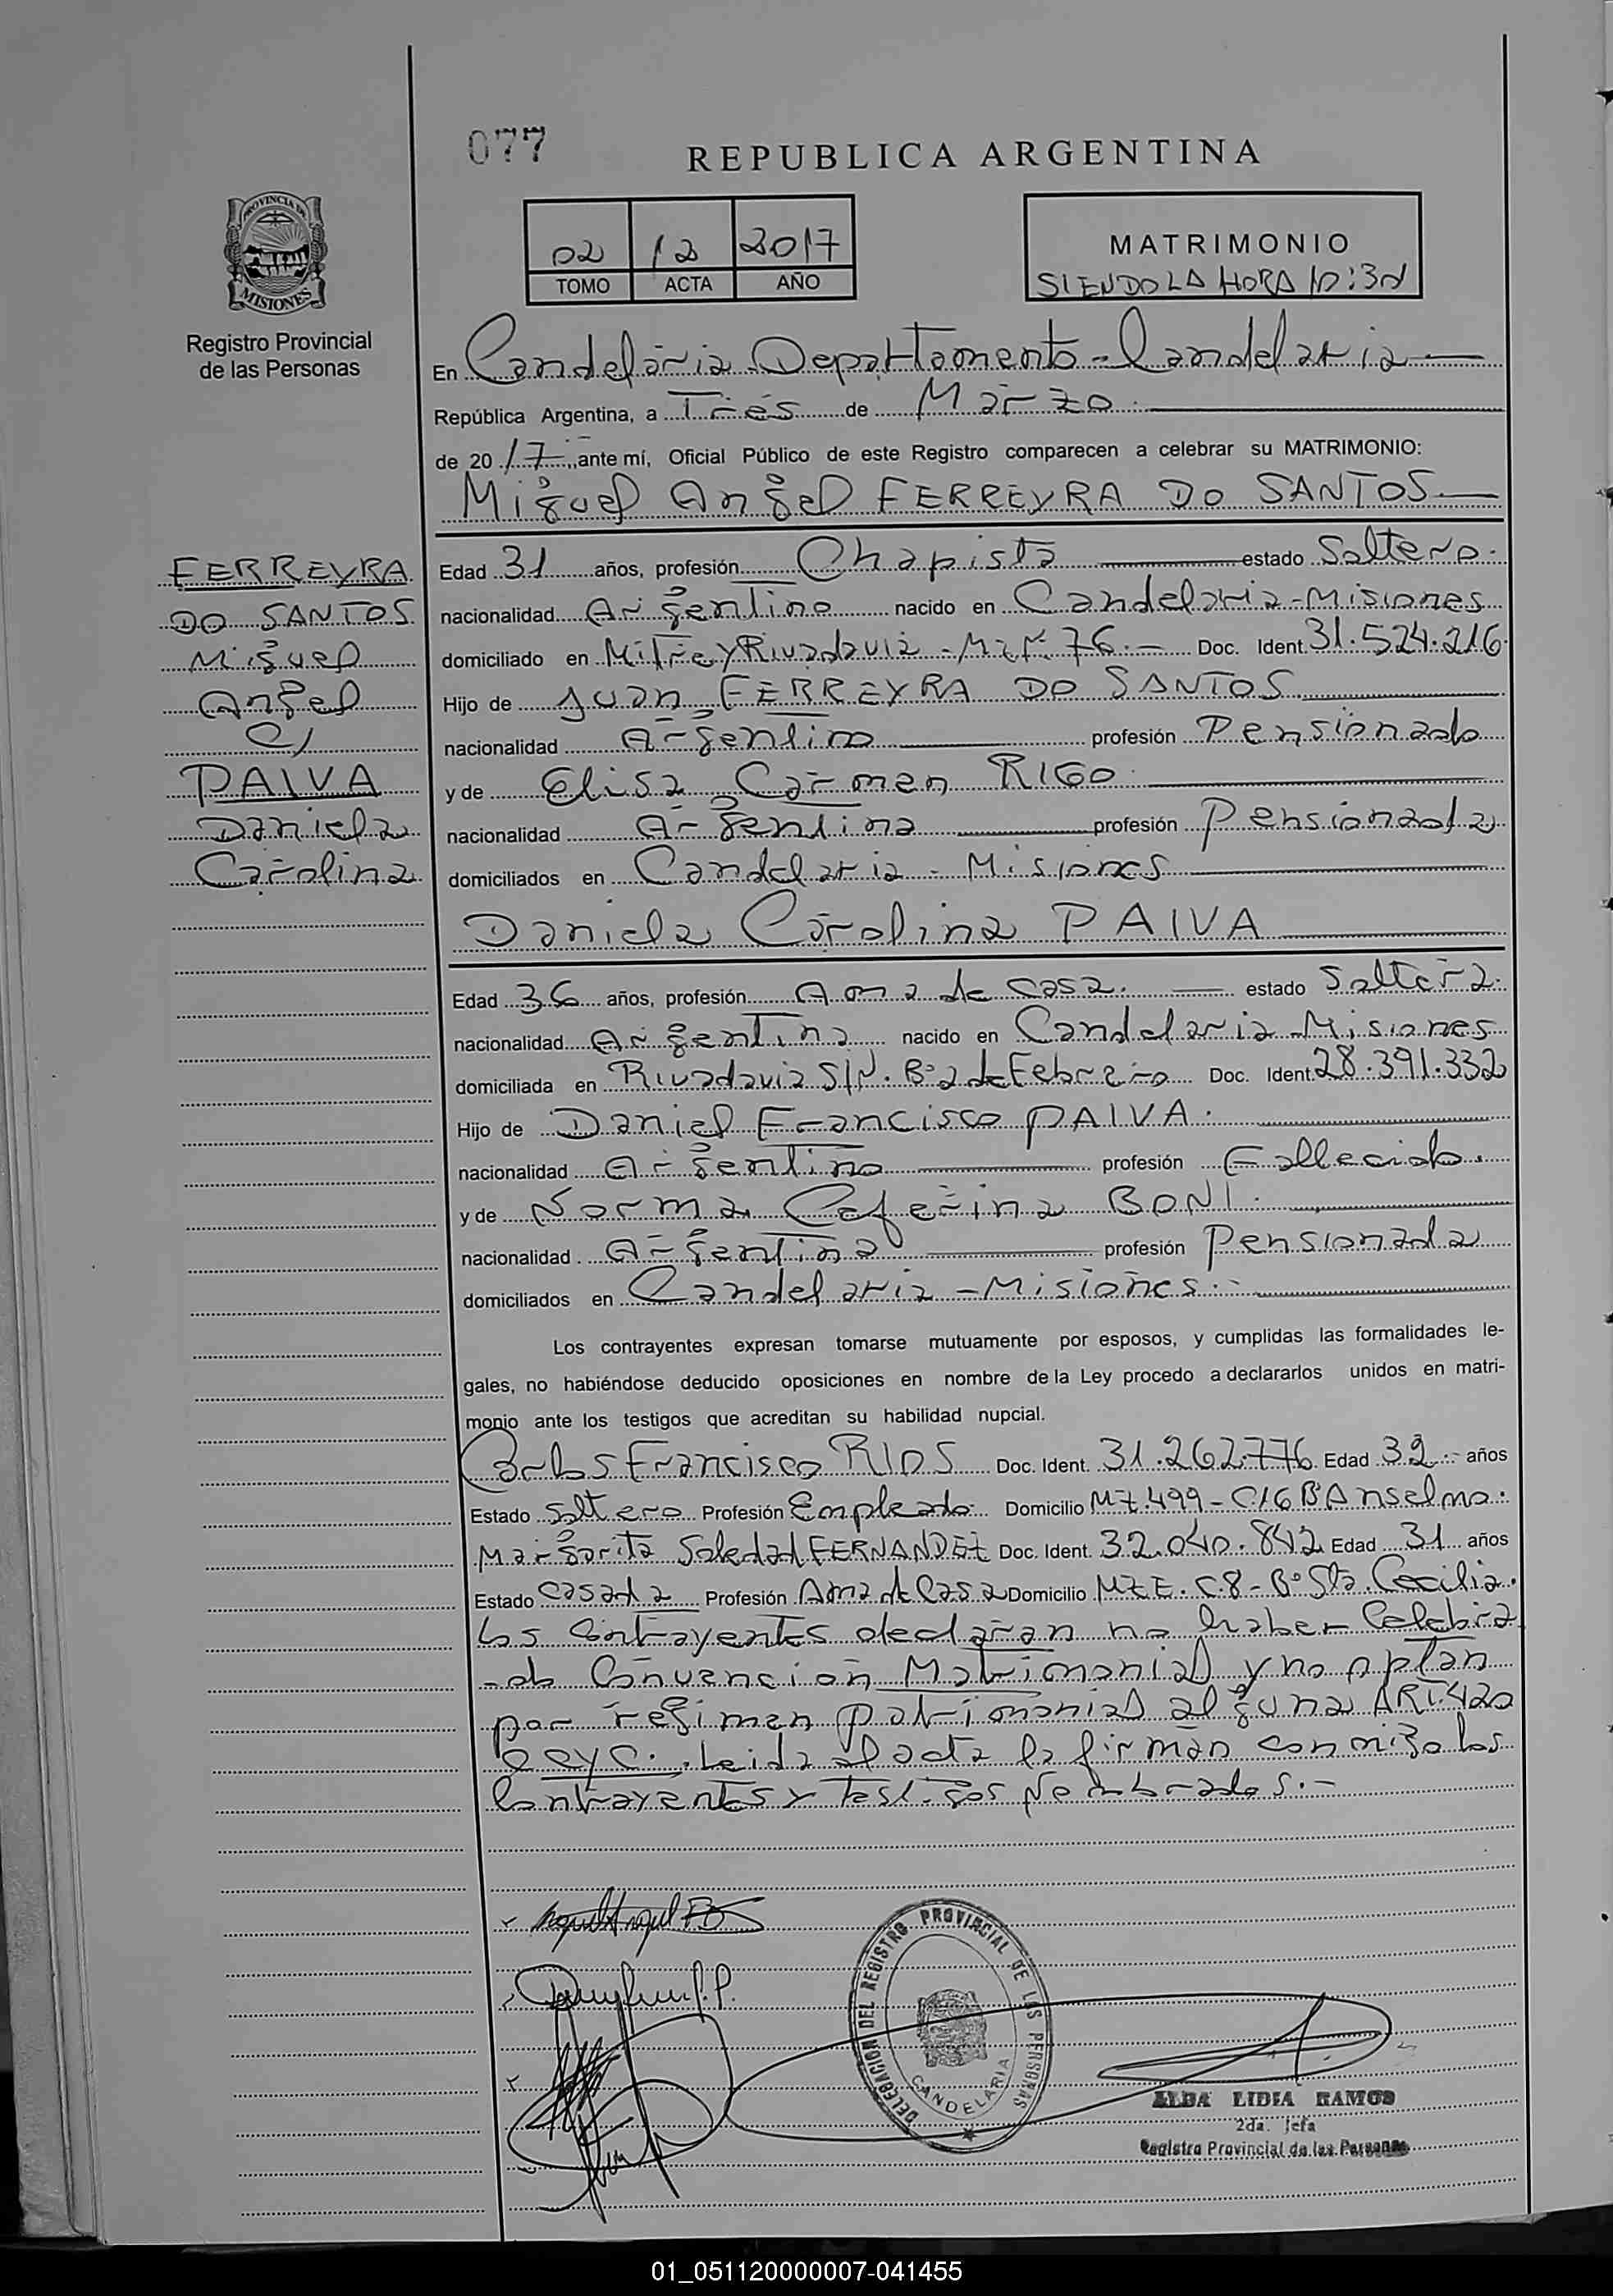 077
REPUBLICA ARGENTINA
PROVINCIA DE
MISIONES
Registro Provincial
de las Personas
02 12 2017
TOMO ACTA AÑO
MATRIMONIO
SIENDO LA HORA 10:30
En Candelaria Departamento - Candelaria
República Argentina, a Tres de Marzo
de 2017 ante mí, Oficial Público de este Registro comparecen a celebrar su MATRIMONIO:
Miguel Angel FERREYRA DO SANTOS
FERREYRA
DO SANTOS
Miguel
Angel
C/
PAIVA
Daniela
Carolina
Edad 31 años, profesión Chapista estado Soltero.
nacionalidad Argentino nacido en Candelaria - Misiones
domiciliado en Mitre y Rivadavia - Mz Nº 76. - Doc. Ident. 31.524.216
Hijo de Juan FERREYRA DO SANTOS
nacionalidad Argentino profesión Pensionado
y de Elisa Carmen RIGO
nacionalidad Argentina profesión Pensionada
domiciliados en Candelaria - Misiones
Daniela Carolina PAIVA
Edad 36 años, profesión Ama de casa. estado Soltera.
nacionalidad Argentina nacido en Candelaria - Misiones
domiciliada en Rivadavia S/N. Bº 2 de Febrero Doc. Ident. 28.391.332
Hijo de Daniel Francisco PAIVA.
nacionalidad Argentino profesión Fallecido.
y de Norma Ceferina BONI.
nacionalidad Argentina profesión Pensionada
domiciliados en Candelaria - Misiones. -
Los contrayentes expresan tomarse mutuamente por esposos, y cumplidas las formalidades le-
gales, no habiéndose deducido oposiciones en nombre de la Ley procedo a declararlos unidos en matri-
monio ante los testigos que acreditan su habilidad nupcial.
Carlos Francisco RIOS Doc. Ident. 31.262.776 Edad 32.- años
Estado Soltero Profesión Empleado. Domicilio Mz.499 - C16 Bº A
Margarita Soledad FERNANDEZ Doc. Ident. 32.040.842 Edad 31 años
Estado casada Profesión Ama de Casa Domicilio Mz E. C.8 - Bº Sta. Cecilia.
Los Contrayentes declaran no haber Celebra
-do Convencion Matrimonial y no optan
por regimen patrimonial alguna ART.420
C C y C. Leida el acta la firman conmigo los
Contrayentes y Testigos Nombrados.-
DELEGACION DEL REGISTRO PROVINCIAL DE LAS PERSONAS
CANDELARIA
ALBA LIDIA RAMOS
2da. Jefa
Registro Provincial de las Personas
01_051120000007-041455